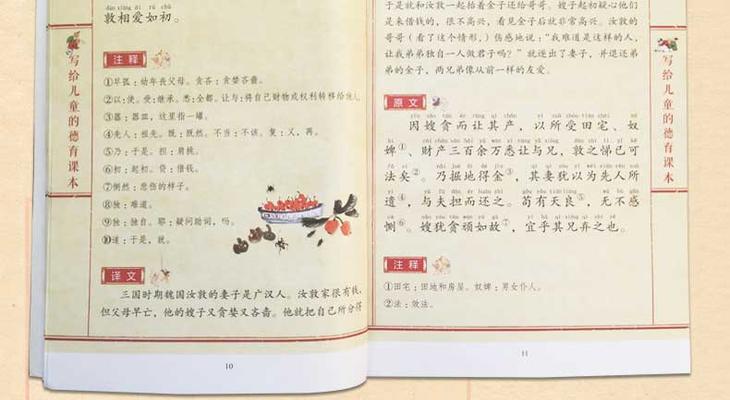 dūn xiāng ài rú chū
敦相爱如初。
注释
①早孤：幼年丧父母。贪吝：贪婪吝啬。
②以：使。受：继承。悉：全都。让与：将自己财物或权利转移给他人。
③器：器皿，这里指一罐。
④先人：祖先。既：既然。不当：不该。复：又，再。
⑤乃：于是。担：肩挑。
⑥初：起初。贷：借钱。
⑦恻然：悲伤的样子。
⑧独：难道。
⑨独：独自。耶：疑问助词，吗。
⑩道：于是，就。
译文
三国时期魏国汝敦的妻子是广汉人。汝敦家很有钱，
但父母早亡，他的嫂子又贪婪又吝啬。他就把自己所分得
10
写给儿童的德育课本
于是就和汝敦一起抬着金子还给哥哥。嫂子起初疑心他们
是来借钱的，很不高兴，看见金子后就非常高兴。汝敦的
哥哥（看了这个情形，）伤感地说：“我难道是这样的人，
让我弟弟独自一人做君子吗？”就逐出了妻子，并退还弟
弟的金子，两兄弟像从前一样的友爱。
原文
因嫂贪而让其产，以所受田宅、奴
婢①、财产三百余万悉让与兄，敦之悌已可
法矣②。乃掘地得金③，其妻犹以为先人所
遗④，与夫担而还之。苟有天良⑤，无不感
恻⑥。嫂犹贪顽如故⑦，宜乎其兄弃之也。
注释
①田宅：田地和房屋。奴婢：男女仆人。
②法：效法。
11
写给儿童的德育课本